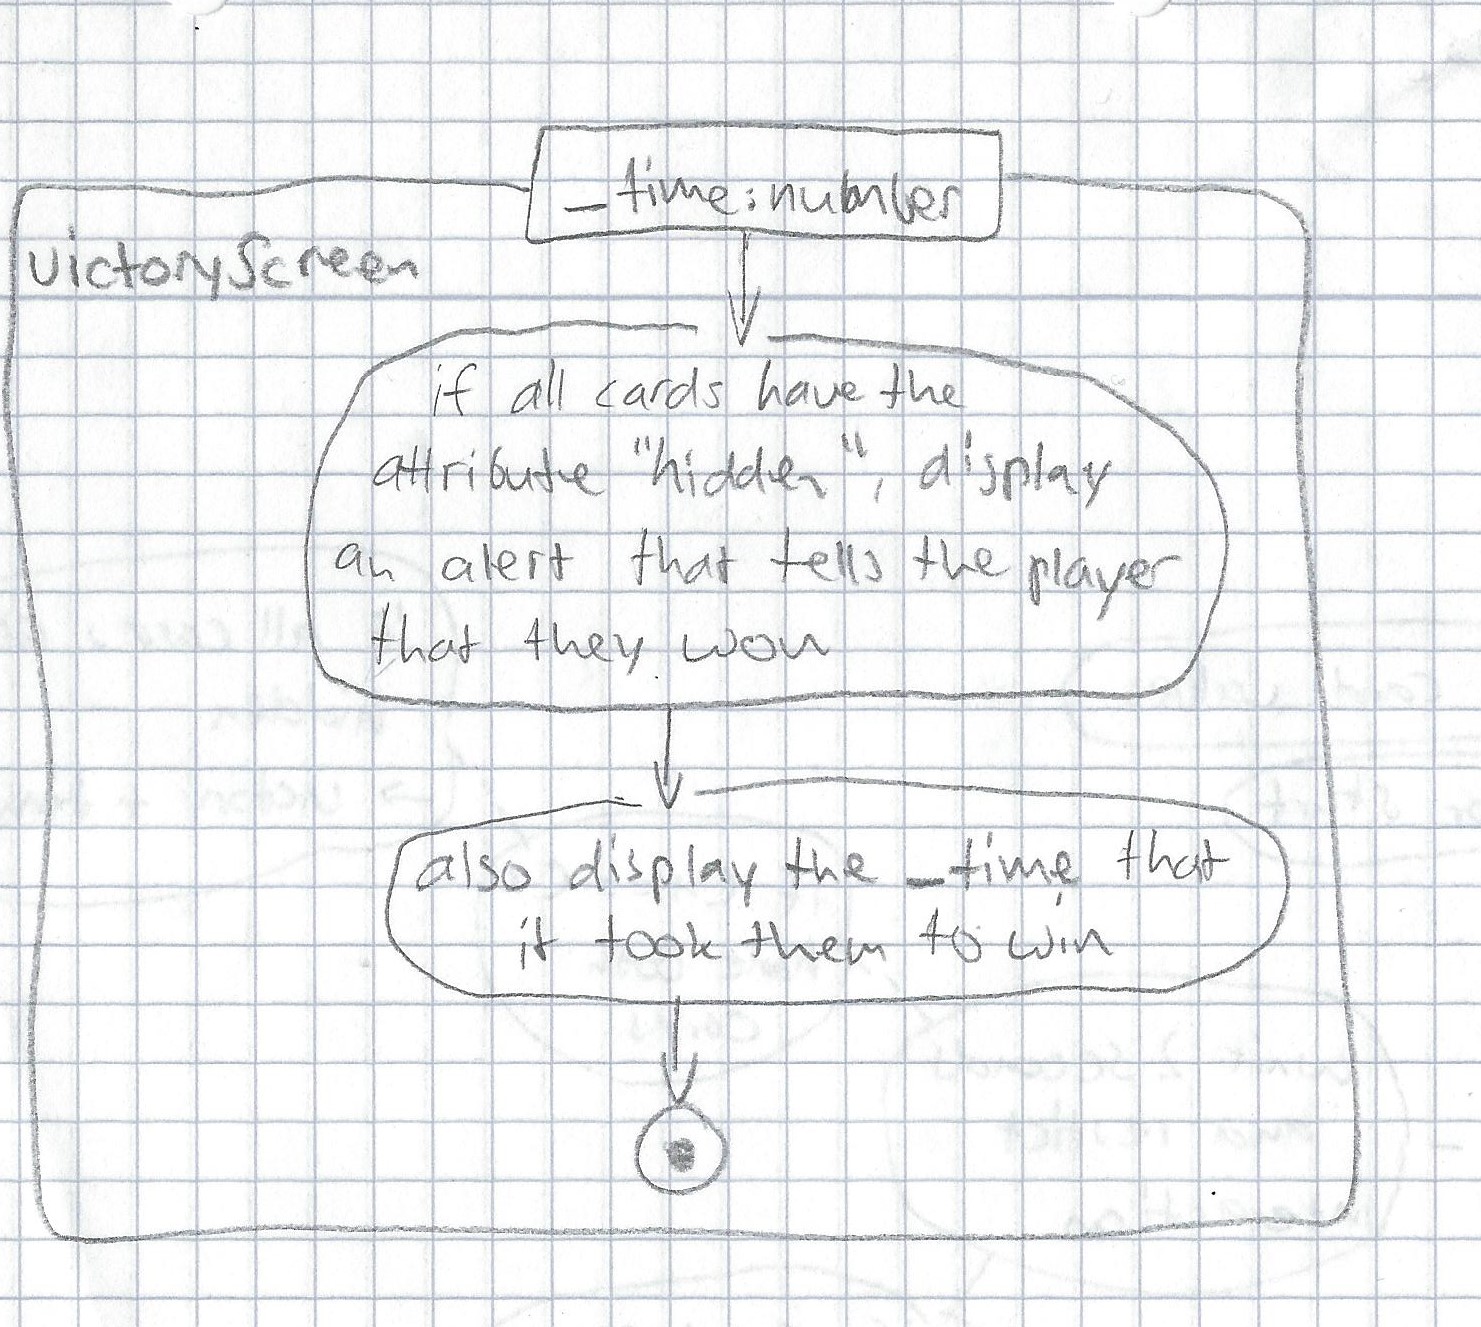 _time:number
victoryScreen
if all cards have the
attribute "hidden", display
an alert that tells the player
that they won
also display the _time that
it took them to win